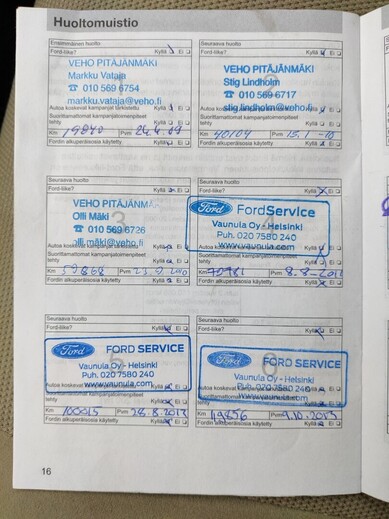 Huoltomuistio
Ensimmäinen huolto
Ford-liike? Kyllä Ei
VEHO PITÄJÄNMÄKI
Markku Vataja
☎ 010 569 6754
markku.vataja@veho.fi
Autoa koskevat kampanjat tarkistettu Kyllä Ei
Suorittamattomat kampanjatoimenpiteet
tehty Kyllä Ei
Km 19840 Pvm 24.4.09
Fordin alkuperäisosia käytetty Kyllä Ei
Seuraava huolto
Ford-liike? Kyllä Ei
VEHO PITÄJÄNMÄKI
Stig Lindholm
☎ 010 569 6717
stig.lindholm@veho.fi
Suorittamattomat kampanjatoimenpiteet
tehty Kyllä Ei
Km 40104 Pvm 15.1-10
Fordin alkuperäisosia käytetty Kyllä Ei
Seuraava huolto
Ford-liike? Kyllä Ei
3
VEHO PITÄJÄNMÄ
Olli Mäki
☎ 010 569 6726
olli.maki@veho.fi
Autoa koskevat kampanjat tarkistettu Kyllä Ei
Suorittamattomat kampanjatoimenpiteet
tehty Kyllä Ei
Km 59868 Pvm 23.9.2010
Fordin alkuperäisosia käytetty Kyllä Ei
Seuraava huolto
Ford-liike? Kyllä Ei
4
Ford FordService
Vaunula Oy - Helsinki
Puh. 020 7580 240
www.vaunula.com
tehty Kyllä Ei
Km Pvm
Fordin alkuperäisosia käytetty Kyllä Ei
Seuraava huolto
Ford-liike? Kyllä Ei
5
Ford FORD SERVICE
Vaunula Oy - Helsinki
Puh. 020 7580 240
www.vaunula.com
Autoa koskevat
Suorittamattomat kampanjatoimenpiteet
tehty Kyllä Ei
Km 100015 Pvm 28.8.2012
Fordin alkuperäisosia käytetty Kyllä Ei
Seuraava huolto
Ford-liike? Kyllä Ei
6
Ford FORD SERVICE
Vaunula Oy - Helsinki
Puh. 020 7580 240
www.vaunula.com
Autoa koskevat
Suorittamattomat kampanjatoimenpiteet
tehty Kyllä Ei
Km 119856 Pvm 9.10.2013
Fordin alkuperäisosia käytetty Kyllä Ei
16